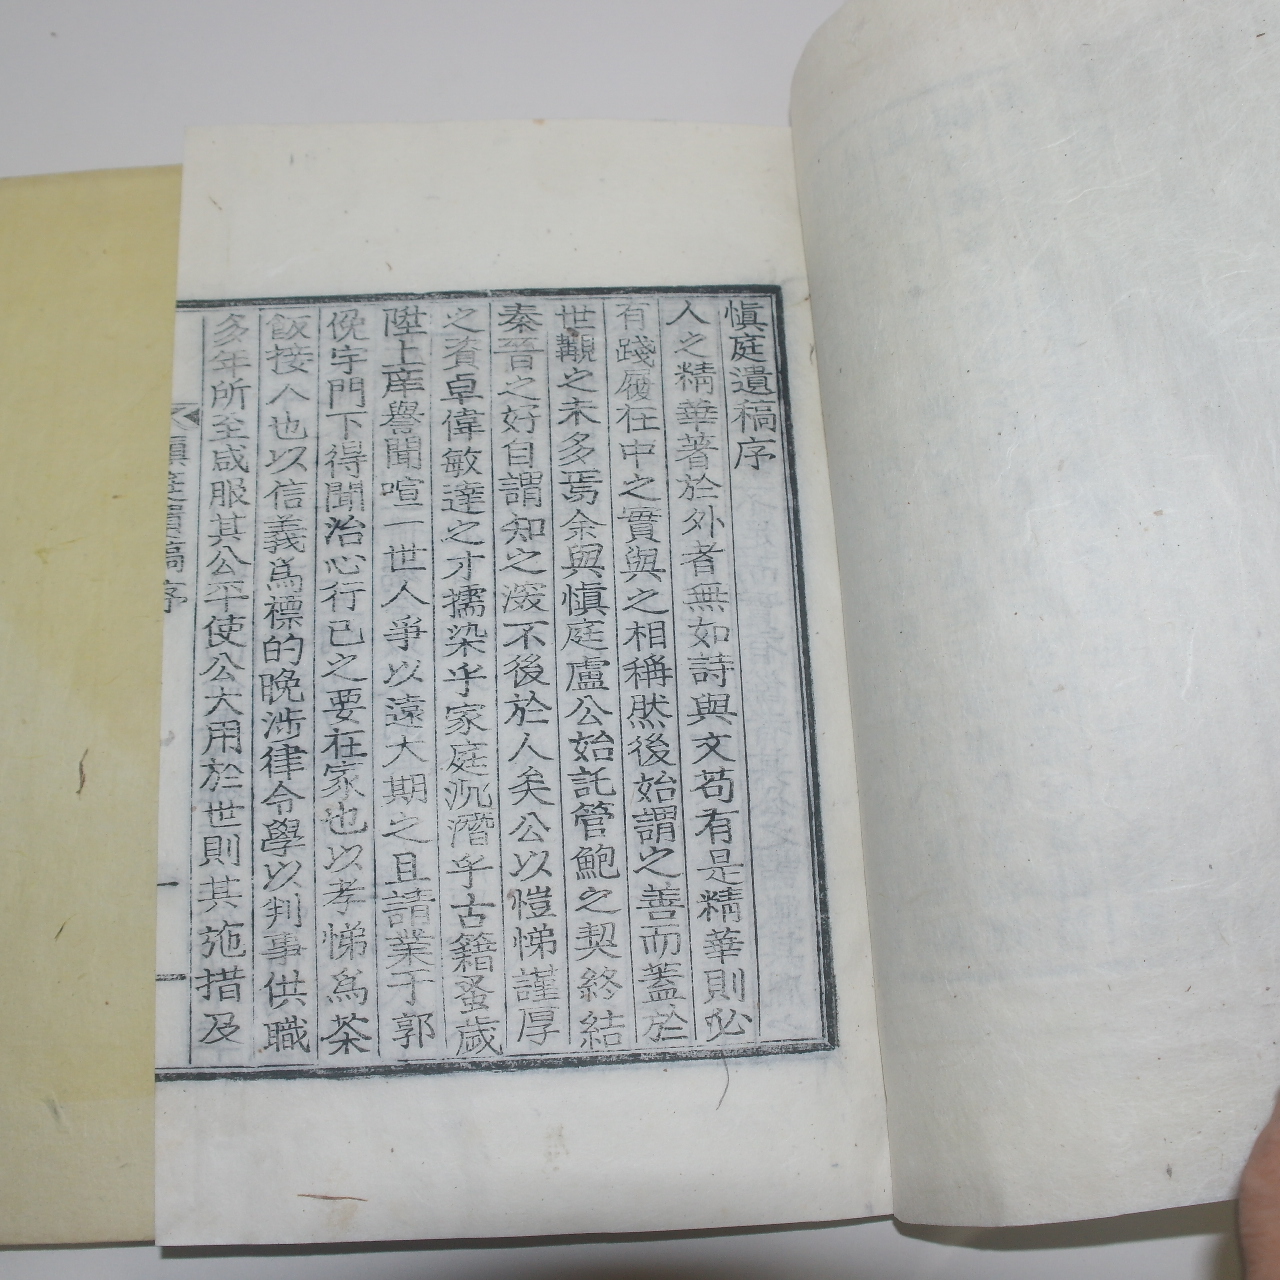 愼庭遺稿序
人之精華著於外者無如詩與文苟有是精華則必
有踐履在中之實與之相稱然後始謂之善而蓋於
世覯之未多焉余與愼庭盧公始託管鮑之契終結
秦晉之好自謂知之深不後於人矣公以愷悌謹厚
之資卓偉敏達之才擩染乎家庭沉潛乎古籍蚤歲
陞上庠譽聞喧一世人爭以遠大期之且請業于郭
俛宇門下得聞治心行己之要在家也以孝悌爲茶
飯接人也以信義爲標的晩涉律令學以判事供職
多年所至咸服其公平使公大用於世則其施措及
愼庭遺稿序
一